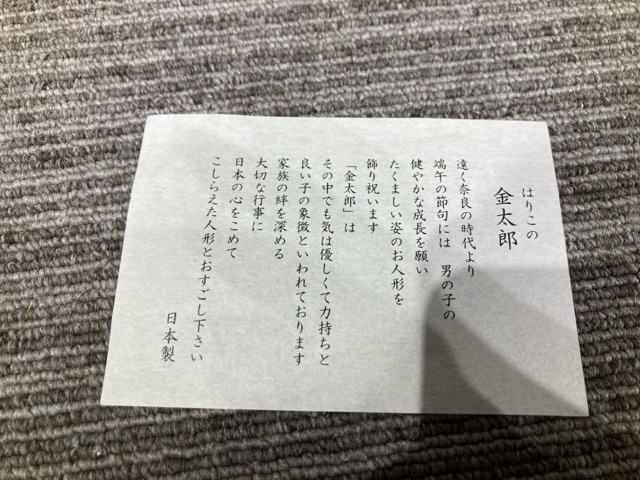 はりこの
金太郎
遠く奈良の時代より
端午の節句には 男の子の
健やかな成長を願い
たくましい姿のお人形を
飾り祝います
「金太郎」は
その中でも気は優しくて力持ちと
良い子の象徴といわれております
家族の絆を深める
大切な行事に
日本の心をこめて
こしらえた人形とおすごし下さい
日本製